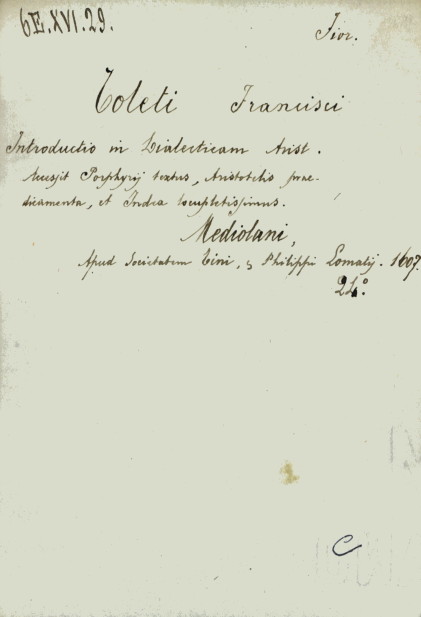 6E.XVI.29.
Fior.
Toleti Francisci
Introductio in Dialecticam Arist.
Accessit Porphyrij textus, Aristotelis prae-
dicamenta, et Index locupletissimus.
Mediolani,
Apud Societatem Tini, & Philippi Lomatij. 1607.
24.°
C